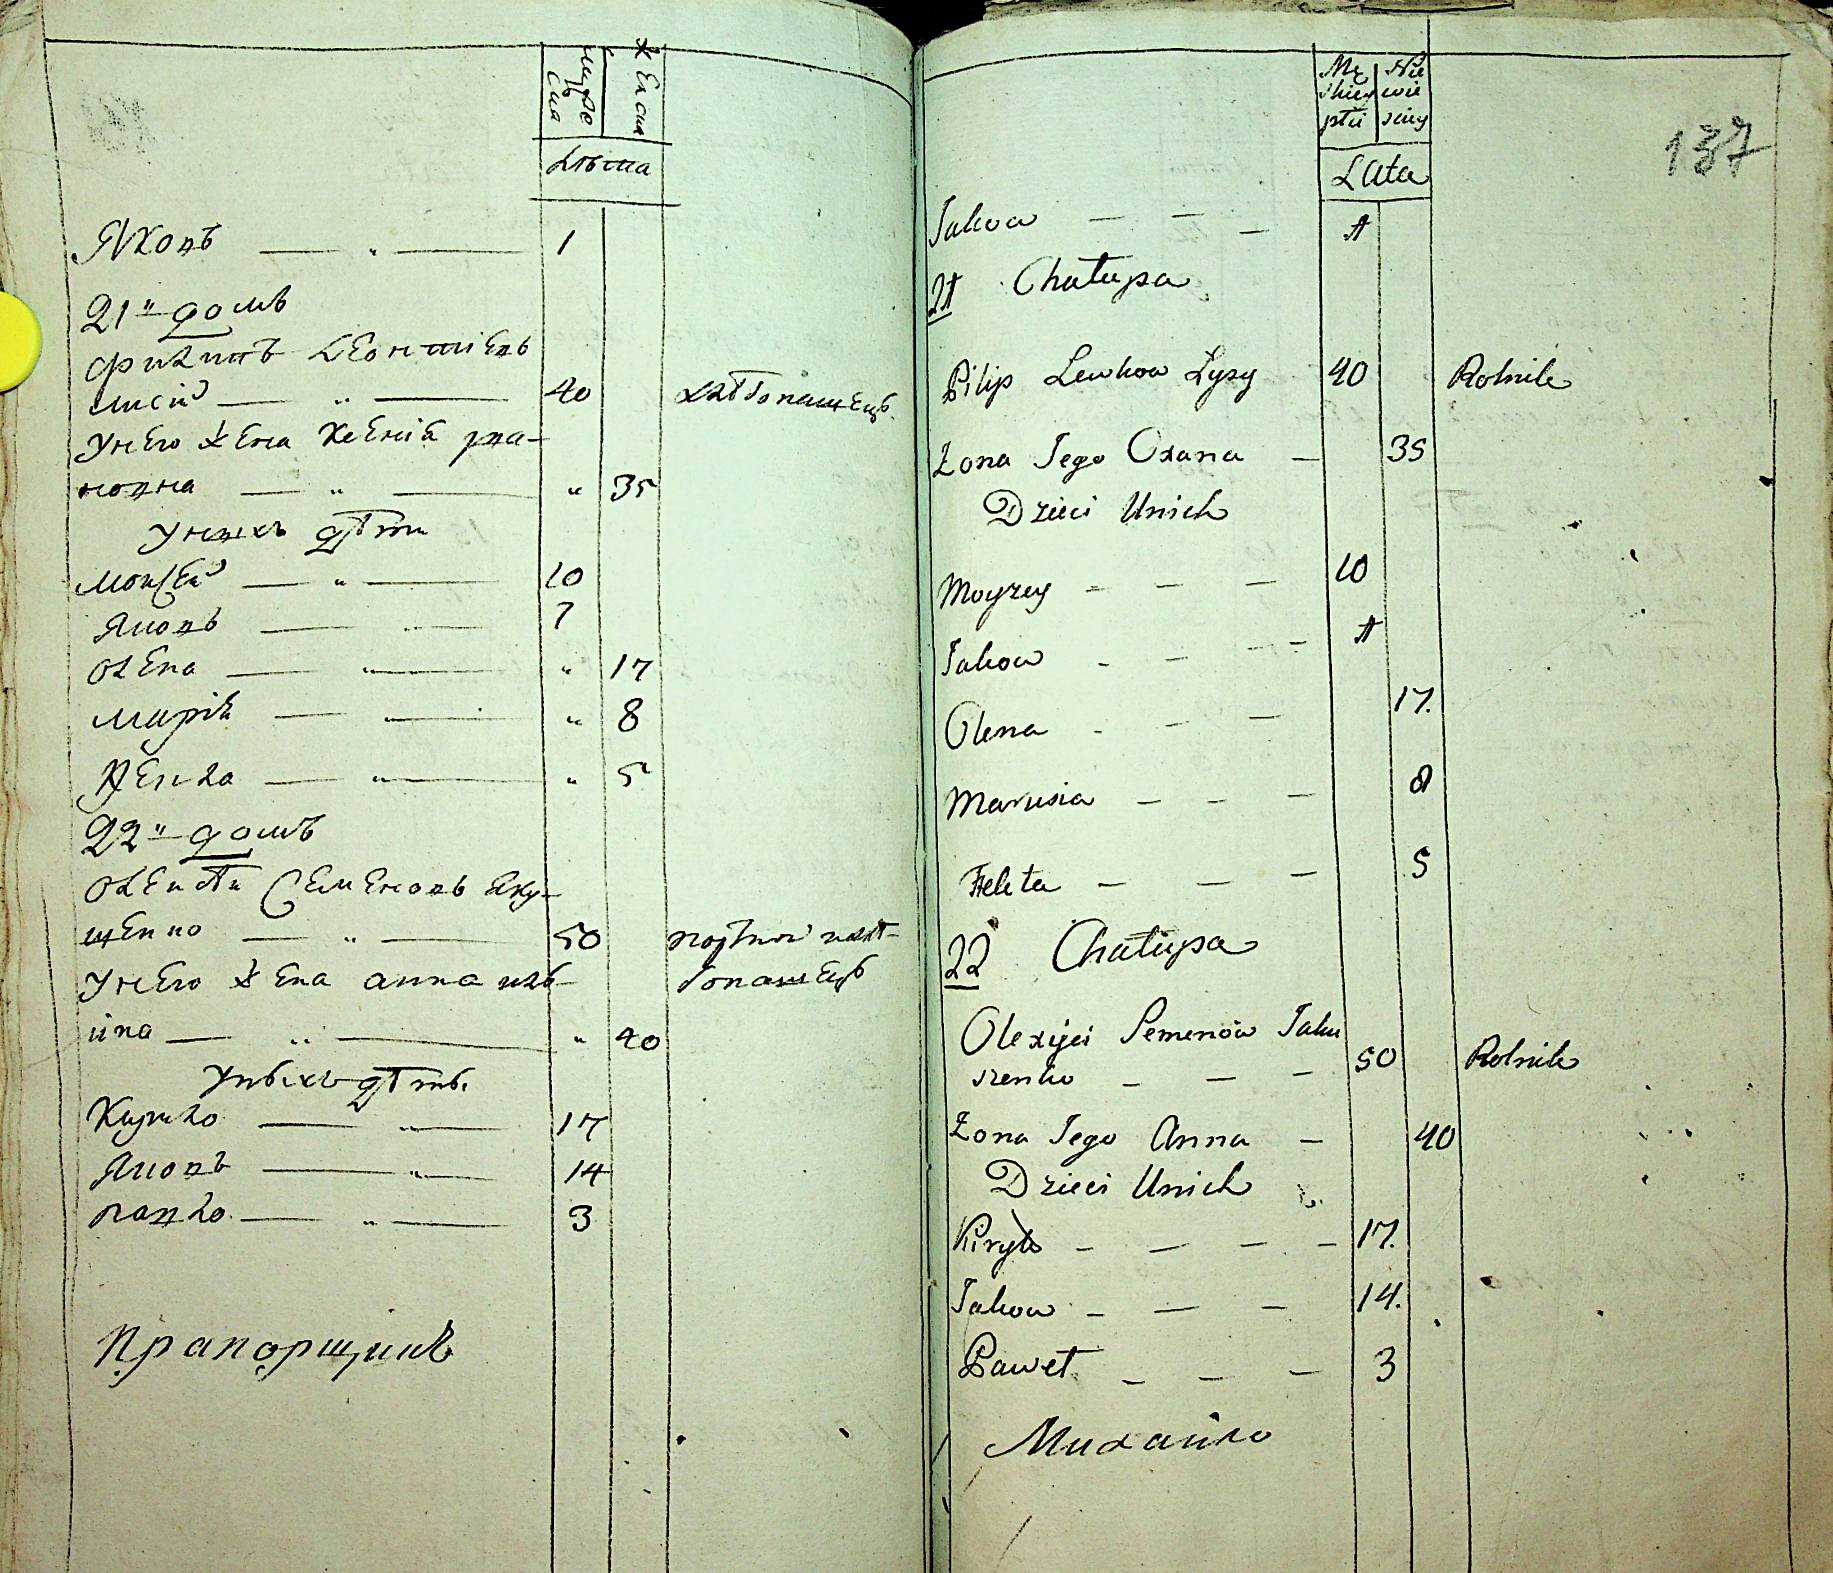 мужеска
женска
Лѣта
Яковъ — „ — 1
21й домъ
Филипъ Леонтіевъ
лисій — „ — 40 хлѣбопашецъ
У него жена Ксенія
новна — „ — „ 35
У нихъ дѣти
Мойсей — „ — 10
Яковъ — „ — 7
Олена — „ — „ 17
Марія — „ — „ 8
Текла — „ — „ 5
22й домъ
Олексѣй Семеновъ Яку-
щенко — „ — 50
У него жена анна
40 пашецъ
У ныхъ дѣты
Кирило — „ — 17
Яковъ — „ — 14
павло — „ — 3
Прапорщикъ
137
Męskiey płci
Niewieściey
Lata
Jakow — — — 1
21 Chałupa
Pilip Lewkow Łysy 40 Rolnik
Zona Jego Oxana — 35
Dzieci Unich
Moyzey — — — 10
Jakow — — — 1
Olena — — 17.
Marusia — — — 8
Fekła — — — 5
22 Chałupa
Olexiei Semenow Jaku
szenko — — — 50 Rolnik
Zona Jego Anna — 40
Dzieci Unich
Kiryło — — — — 17.
Jakow — — — 14.
Paweł — — — 3
Михайло